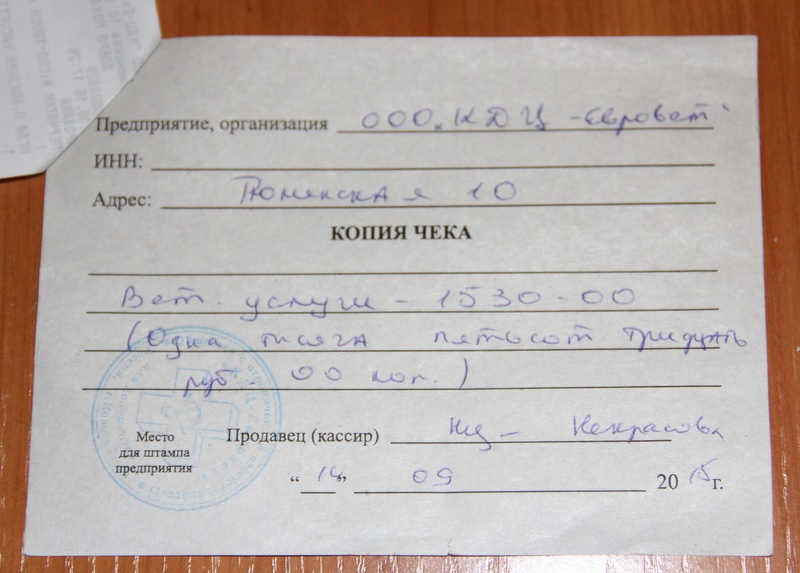 Предприятие, организация ООО „КДЦ -Евровет"
ИНН:
Адрес: Тюменская 10
КОПИЯ ЧЕКА
Вет. услуги - 1530-00
(Одна тисяга пятьсот тридцать
руб 00 коп.)
Продавец (кассир) Некрасова
Место
для штампа
предприятия
“14” 09 2015 г.